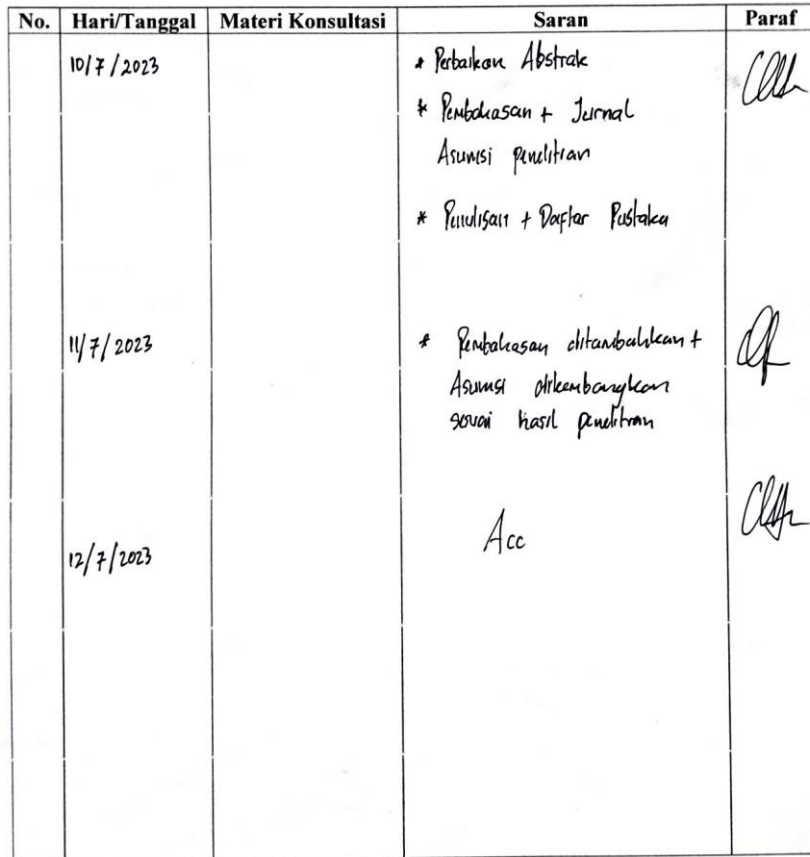 No. Hari/Tanggal Materi Konsultasi Saran Paraf
10/7/2023 * Perbaikan Abstrak
* Pembahasan + Jurnal
Asumsi penelitian
* Penulisan + Daftar Pustaka
11/7/2023 * Pembahasan ditambahkan +
Asumsi dikembangkan
sesuai hasil penelitian
Acc
12/7/2023